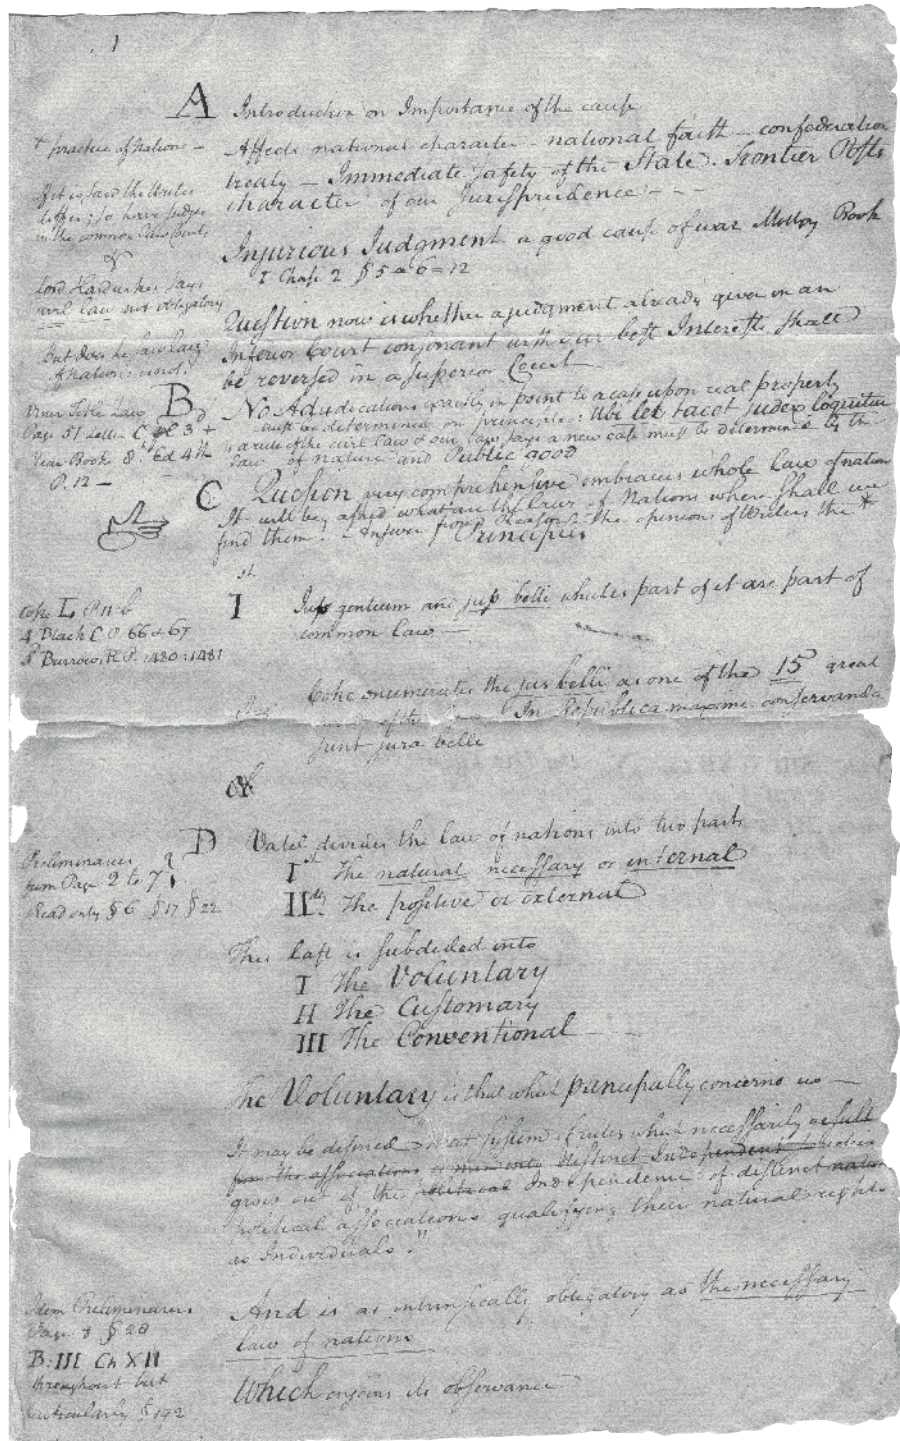 1
A Introduction on Importance of the cause
Affects national character - national faith - confederation
treaty - Immediate safety of the State. Frontier Posts
character of our Jurisprudence - - -
+ practice of Nations -
If it is said the Writers
differ; so have Judges
in the common Law Courts
&
Lord Hardwicke says
civil law not obligatory
But does he say law
of Nations is not?
Injurious Judgment a good cause of war Molloy Book
I Chap 2 § 5 a 6 = 12
Question now is whether a judgment already given in an
Inferior Court consonant with our best Interests shall
be reversed in a superior Court
B
Viner Title Law
Page 51 Letter C pl 3d +
Year Book 8th Ed 4th
P. 12 -
No Adjudications exactly in point to a case upon real property
must be determined on principle. Ubi lex tacet Judex loquitur
is a rule of the civil law & our law says a new case must be determined by the
law of nature and Public good
C Question very comprehensive embraces whole law of nations
It will be asked what are the laws of Nations where shall we
find them? - Answer from Reason - the opinions of Writers the *
Principles
Ist
Jus gentium and jus belli which is part of it are part of
common law -
Coke L. P 11 b
4 Black C P. 66 & 67
3 Burrows R P. 1480: 1481
Coke enumerates the jus belli as one of the 15 great
of the In Republica maxime conservanda
sunt jura belli
D
Vatel divides the law of nations into two parts
Ist The natural necessary or internal
IIdly The positive or external
Preliminaries
from Page 2 to 7
Read only § 6 § 17 § 22
This last is subdivided into
I The Voluntary
II The Customary
III The Conventional
The Voluntary is that which principally concerns us -
It may be defined - "that system of rules which necessarily result
from the associations of men into distinct Independent
grow out of the political Independence of distinct nations
political associations qualifying their natural rights
as Individuals."
And is as intrinsically obligatory as the necessary
law of nations
Idem Preliminaries
Page 8 § 28
B: III Ch XII
throughout but
particularly § 192
Which enjoins its observance